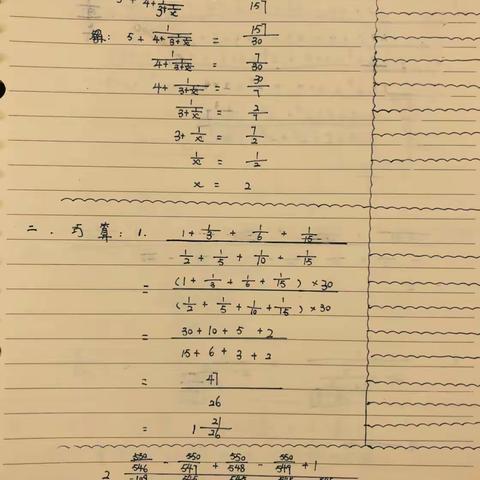 解: 5 + 1/(4 + 1/(3 + 1/x)) = 157/30
1/(4 + 1/(3 + 1/x)) = 7/30
4 + 1/(3 + 1/x) = 30/7
1/(3 + 1/x) = 2/7
3 + 1/x = 7/2
1/x = 1/2
x = 2
二. 巧算: 1. (1 + 1/3 + 1/6 + 1/15)/(1/2 + 1/5 + 1/10 + 1/15)
= ((1 + 1/3 + 1/6 + 1/15) × 30)/((1/2 + 1/5 + 1/10 + 1/15) × 30)
= (30 + 10 + 5 + 2)/(15 + 6 + 3 + 2)
= 47/26
= 1 21/26
2 550/546 - 550/547 + 550/548 - 550/549 + 1